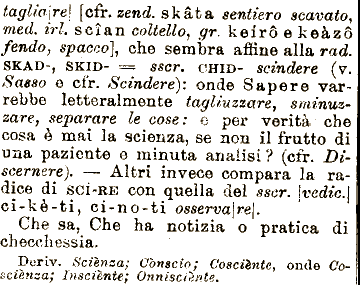 taglia|re| [cfr. zend. skâta sentiero scavato,
med. irl. scîan coltello, gr. keirô e keàzô
fendo, spacco], che sembra affine alla rad.
SKAD-, SKID- = sscr. CHID- scindere (v.
Sasso e cfr. Scindere): onde Sapere var-
rebbe letteralmente tagliuzzare, sminuz-
zare, separare le cose: e per verità che
cosa è mai la scienza, se non il frutto di
una paziente e minuta analisi? (cfr. Di-
scernere). — Altri invece compara la ra-
dice di SCI-RE con quella del sscr. |vedic.|
ci-kè-ti, ci-no-ti osserva|re|.
Che sa, Che ha notizia o pratica di
checchessia.
Deriv. Sciènza; Conscio; Cosciènte, onde Co-
sciènza; Insciènte; Onnisciènte.